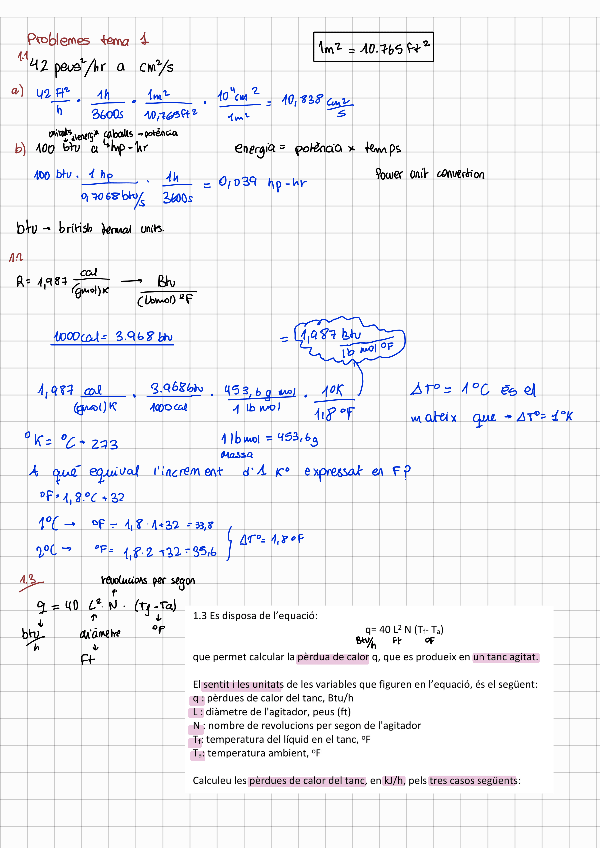 Problemes tema 1
1m² = 10.765 ft²
1.1 42 peus²/hr a cm²/s
a) 42 ft²/h · 1h/3600s · 1m²/10,765ft² · 10⁴cm²/1m² = 10,838 cm²/s
unitats d'energia caballs → potència
b) 100 btu a hp-hr energia = potència x temps
100 btu · 1 hp/0,7068 btu/s · 1h/3600s = 0,039 hp-hr Power unit convertion
btu → british termal units.
1.2
R = 1,987 cal/(gmol)K → Btu/(lbmol)ºF
1000cal = 3.968 btu = 1,987 btu/lb mol ºF
1,987 cal/(gmol)K · 3.968btu/1000cal · 453,6 g mol/1 lb mol · 1ºK/1,8ºF ΔTº = 1ºC és el
mateix que → ΔTº = 1ºK
ºK = ºC + 273 1 lb mol = 453,6g
massa
A què equival l'increment d'1 Kº expressat en F?
ºF = 1,8·ºC + 32
1ºC → ºF = 1,8 · 1 + 32 = 33,8
ΔTº = 1,8 ºF
2ºC → ºF = 1,8 · 2 + 32 = 35,6
1.3 revolucions per segon
q = 40 L² · N · (Tf - Ta)
btu/h diàmetre ºF
Ft
1.3 Es disposa de l'equació:
q= 40 L² N (Tf- Ta)
Btu/h Ft ºF
que permet calcular la pèrdua de calor q, que es produeix en un tanc agitat.
El sentit i les unitats de les variables que figuren en l'equació, és el següent:
q : pèrdues de calor del tanc, Btu/h
L : diàmetre de l'agitador, peus (ft)
N : nombre de revolucions per segon de l'agitador
Tf: temperatura del líquid en el tanc, ºF
Ta: temperatura ambient, ºF
Calculeu les pèrdues de calor del tanc, en kJ/h, pels tres casos següents: